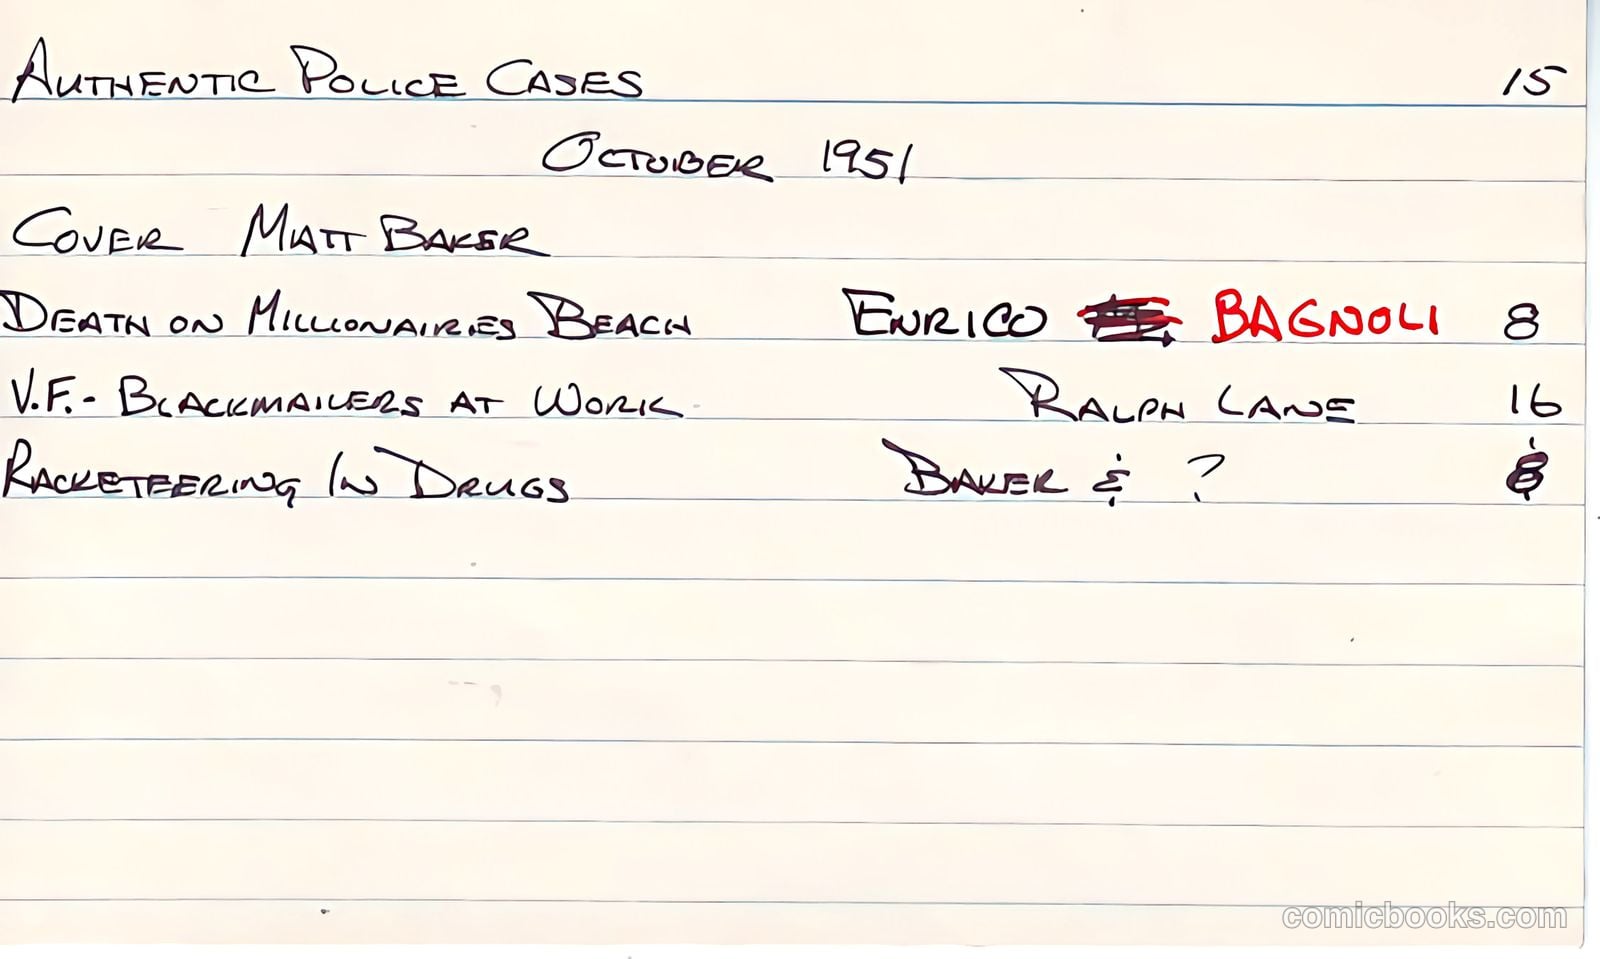 AUTHENTIC POLICE CASES 15
OCTOBER 1951
COVER MATT BAKER
DEATH ON MILLIONAIRES BEACH ENRICO BAGNOLI 8
V.F. - BLACKMAILERS AT WORK RALPH LANE 16
RACKETEERING IN DRUGS BAKER & ? 8
comicbooks.com